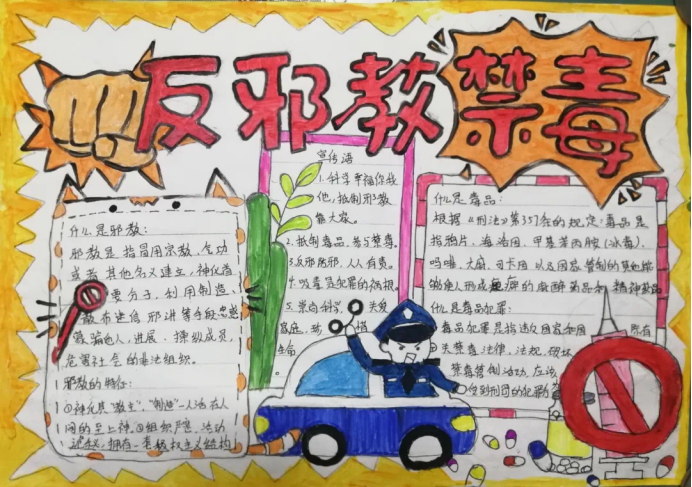 反邪教
禁毒
什么是邪教:
邪教是指冒用宗教、气功
或者其他名义建立,神化首
要分子,利用制造、
散布迷信邪说等手段蛊惑
蒙骗他人,发展、操纵成员,
危害社会的非法组织。
邪教的特征:
①神化其“教主”,“制造”一人活在人
间的至上神。②组织严密,活动
诡秘,拥有一套极权主义结构
宣传海
1.科学幸福你我
他,抵制邪教
靠大家。
2.抵制毒品,参与禁毒。
3.反邪防邪,人人有责。
4.吸毒是犯罪的祸根。
5.崇尚科学,关爱
家庭,
生命。
什么是毒品:
根据《刑法》第357条的规定:毒品是
指鸦片、海洛因、甲基苯丙胺(冰毒)、
吗啡、大麻、可卡因以及国家管制的其他能
够使人形成瘾癖的麻醉药品和精神药品
什么是毒品犯罪:
毒品犯罪是指违反国家和国 所有
关禁毒法律、法规,破坏
禁毒管制活动,应该
受到刑罚的犯罪行为